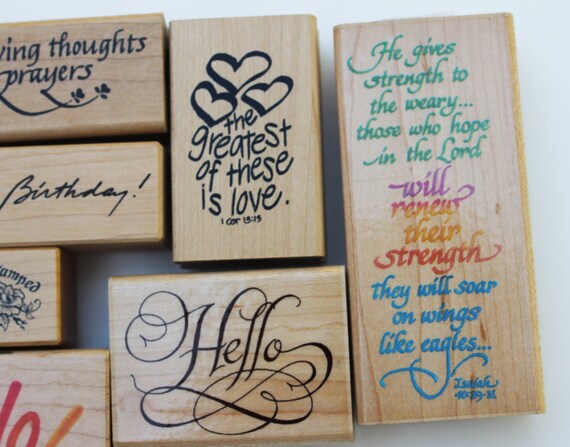 thoughts
prayers
Birthday!
the
greatest
of these
is love.
1 cor 13:13
Hello
He gives
strength to
the weary...
those who hope
in the Lord
will
renew
their
strength
they will soar
on wings
like eagles...
Isaiah
40:29-31